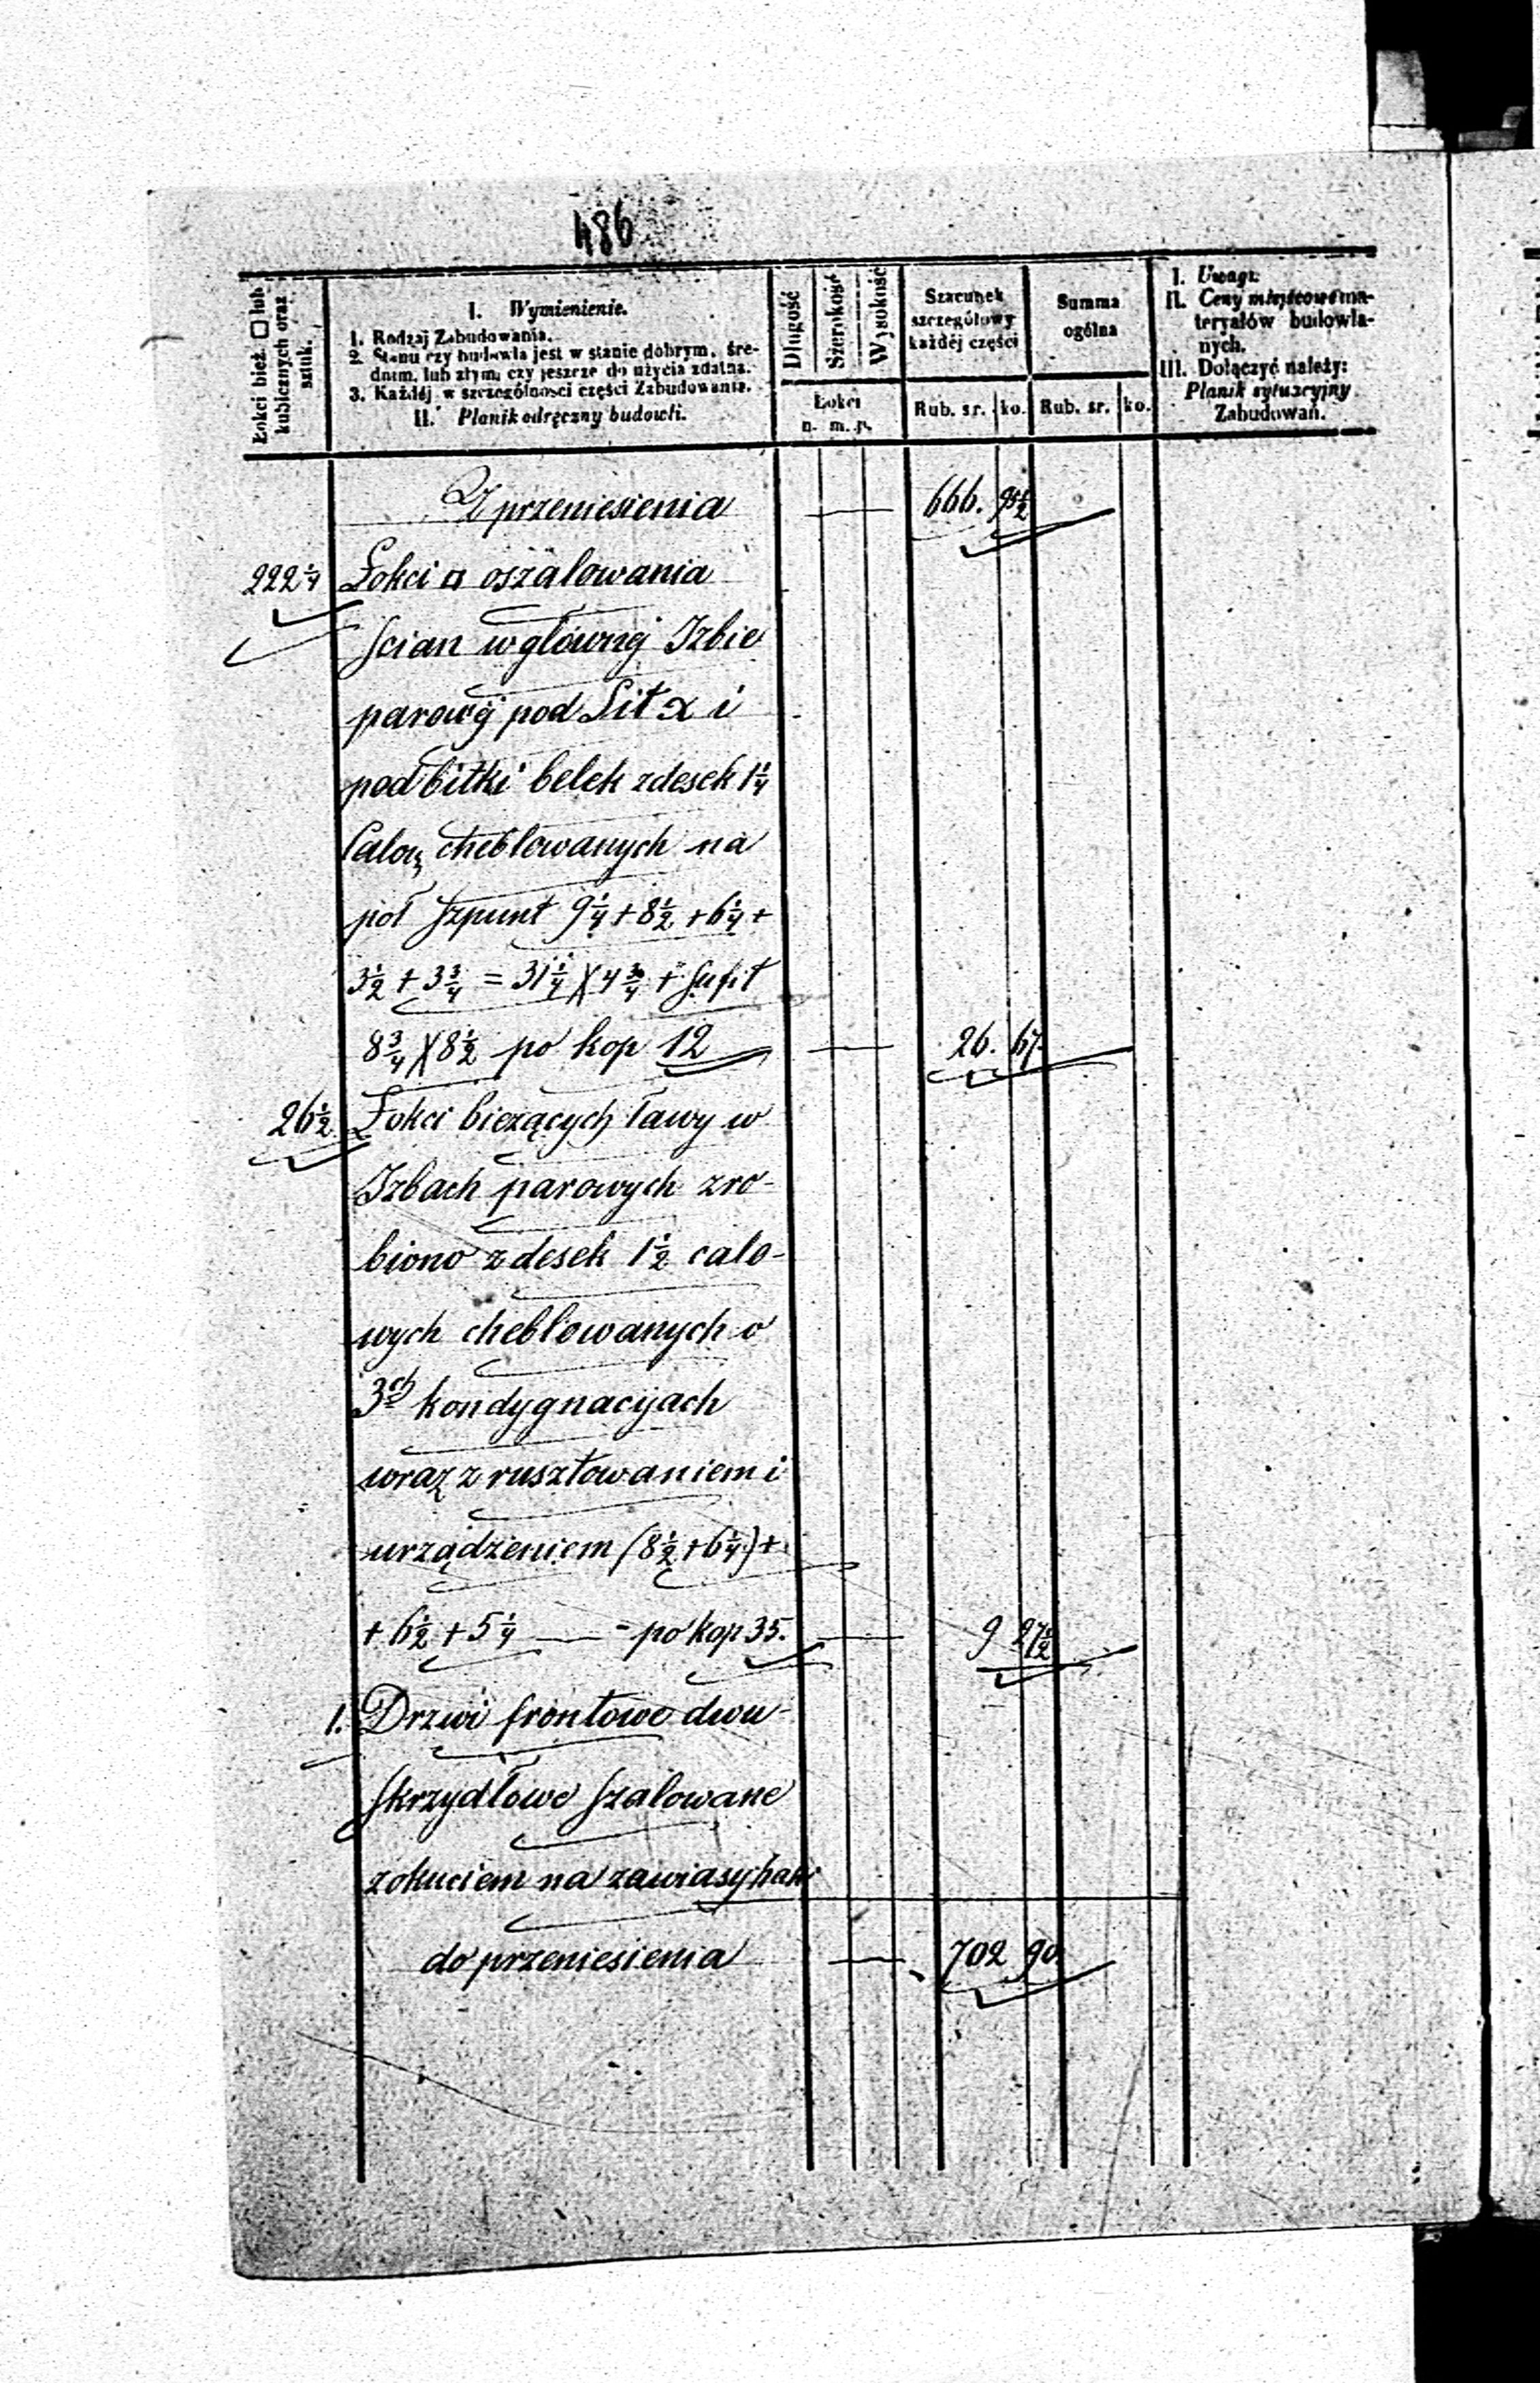 486
Łokci bież. □ lub kubicznych oraz sztuk.
I. Wymienienie.
1. Rodzaj Zabudowania.
2. Stanu czy budowla jest w stanie dobrym, śre-
dnim, lub złym, czy jeszcze do użycia zdatna.
3. Każdéj w szczególności części Zabudowania.
II. Planik odręczny budowli.
Długość
Szerokość
Wysokość
Łokci
n. m. p.
Szacunek
szczegółowy
każdéj części
Rub. sr. ko.
Summa
ogólna
Rub. sr. ko.
I. Uwagi.
II. Ceny miejscowe ma-
teryałów budowla-
nych.
III. Dołączyć należy:
Planik sytuacyjny
Zabudowań.
Z przeniesienia — 666. 95½
222¼ Łokci □ oszalowania
scian w głównej Izbie
parowej pod Lit α i
podbitki belek z desek 1¼
Calow cheblowanych na
pół szpunt 9¼ + 8½ + 6¼ +
3½ + 3¾ = 31¼ X 4¾ + Sufit
8¾ X 8½ po kop 12 — 26. 67.
26½ Łokci bieżących ławy w
Izbach parowych zro-
biono z desek 1½ calo-
wych cheblowanych o
3ch kondygnacyjach
wraz z rusztowaniem i
urządzeniem (8½ + 6¼) +
+ 6½ + 5¼ — - po kop 35. — 9 27½
1. Drzwi frontowe dwu-
skrzydłowe szalowane
z okuciem na zawiasy haki
do przeniesienia — 702 90.